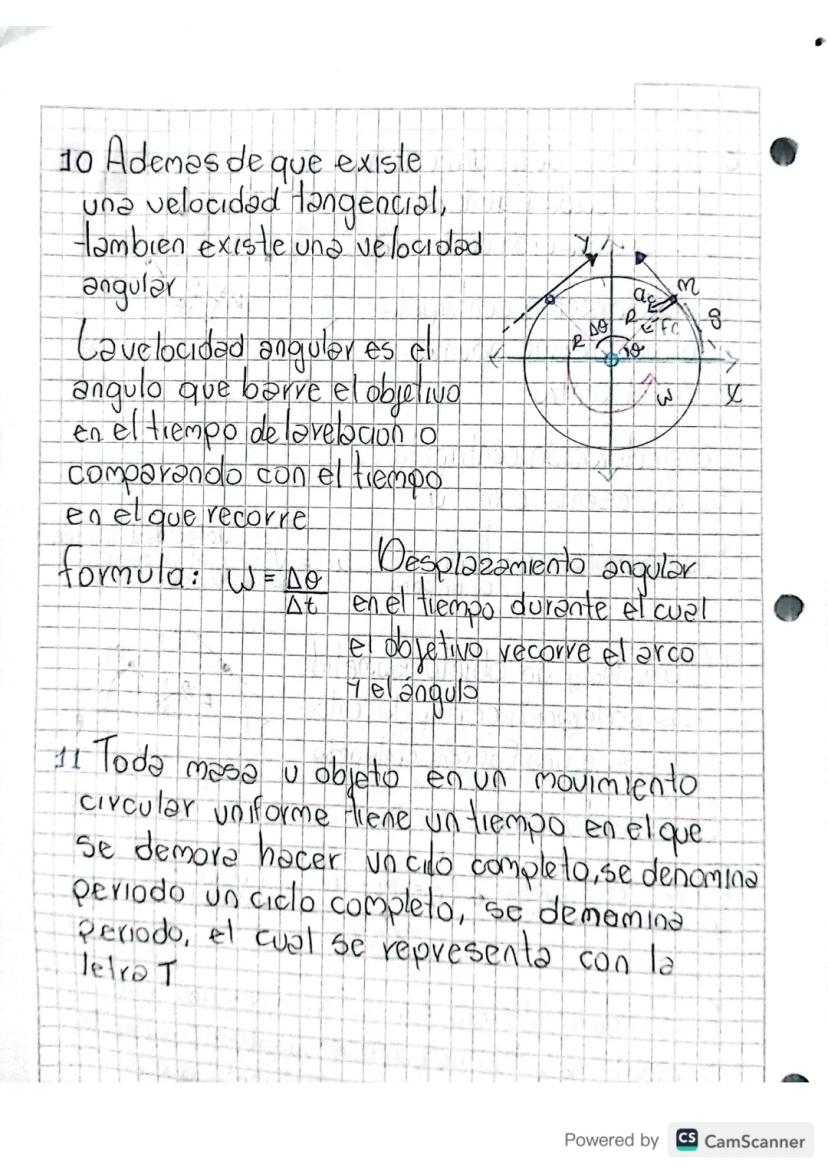 10 Ademas de que existe
una velocidad tangencial,
tambien existe una velocidad
angular
La velocidad angular es el
angulo que barre el objetivo
en el tiempo de la relacion o
comparando con el tiempo
en el que recorre
formula: W = Δθ
Δt
Desplazamiento angular
en el tiempo durante el cual
el objetivo recorre el arco
y el ángulo
y
m
ac
R
Fc
8
Δθ
R
θ
w
x
11 Toda masa u objeto en un movimiento
circular uniforme tiene un tiempo en el que
se demora hacer un cilo completo, se denomina
periodo un ciclo completo, se demomina
periodo, el cual se representa con la
letra T
Powered by CS CamScanner